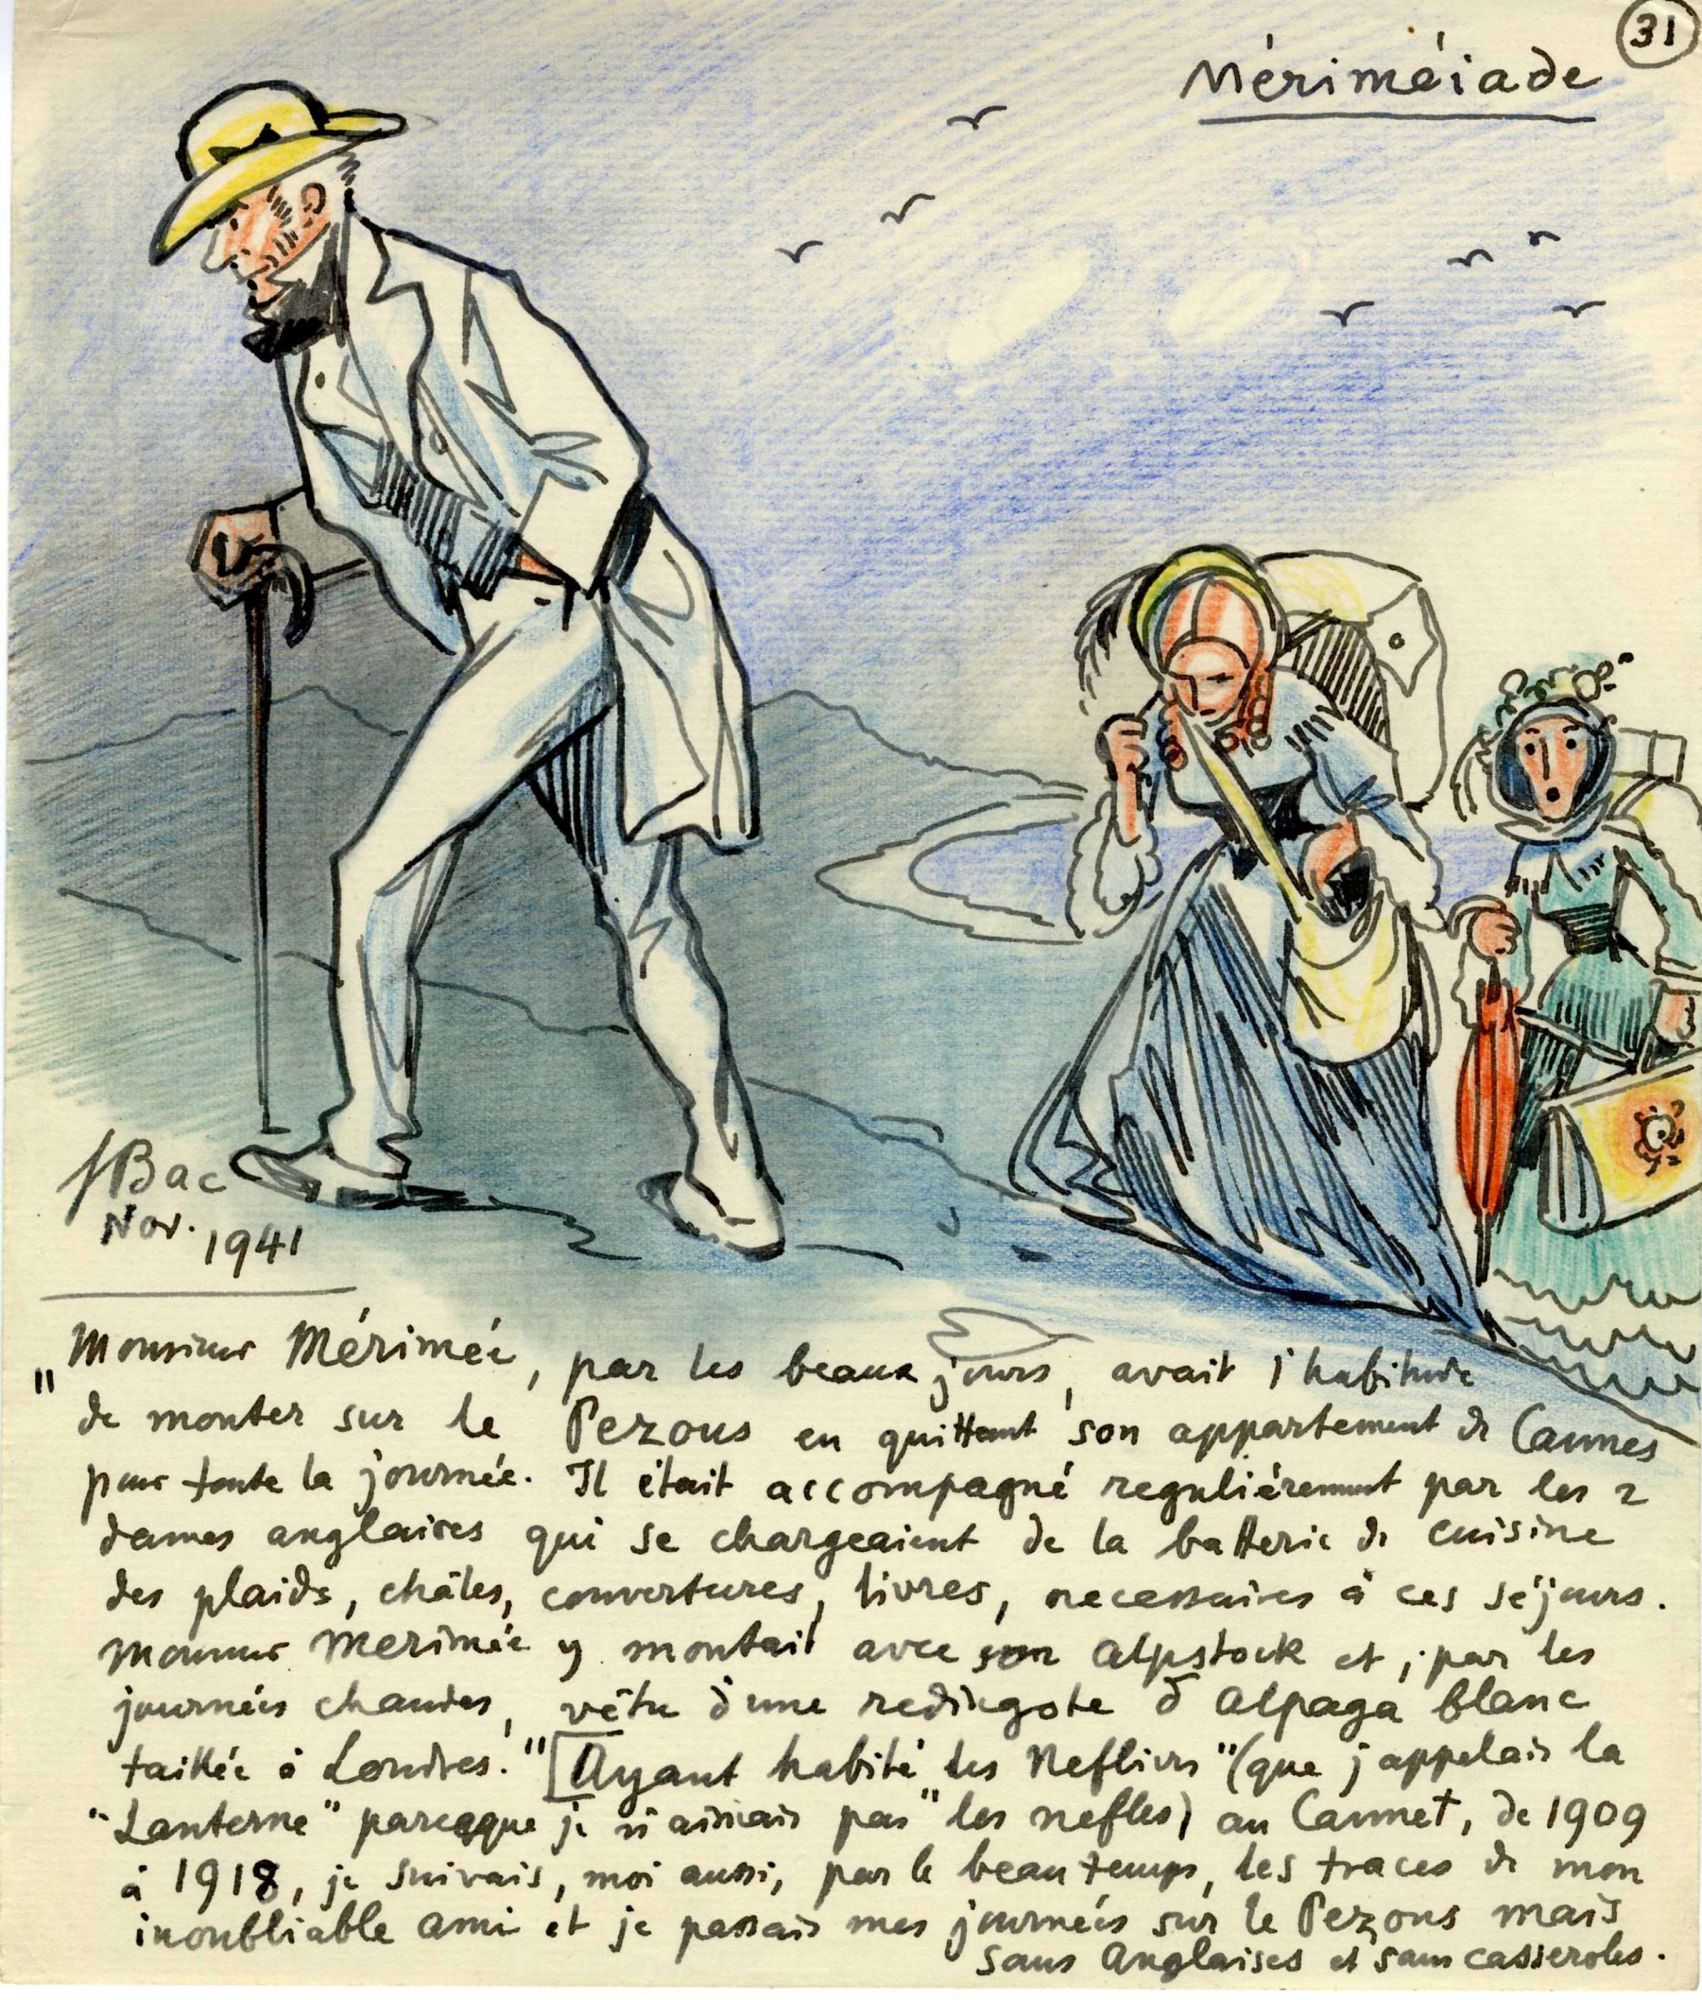 31
Mériméiade
JBac
Nov. 1941
"Monsieur Mérimée, par les beaux jours, avait l'habitude
de monter sur le Pezous en quittant son appartement de Cannes
pour toute la journée. Il était accompagné reguliérement par les 2
dames anglaises qui se chargeaient de la batterie de cuisine
des plaids, châles, couvertures, livres, necessaires à ces séjours.
Monsieur Merimée y montait avec son Alpstock et, par les
journées chaudes, vêtu d'une redingote d'Alpaga blanc
taillée à Londres." [Ayant habité les Nefliers" (que j'appelais la
"Lanterne" parceque je n'aimais pas "les nefles) au Cannet, de 1909
à 1918, je suivais, moi aussi, par le beau temps, les traces de mon
inoubliable ami et je passais mes journées sur le Pezous mais
sans Anglaises et sans casseroles.